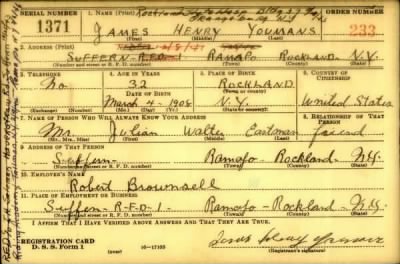 SERIAL NUMBER
1371
1. NAME (Print)
JAMES HENRY YOUMANS
(First) (Middle) (Last)
ORDER NUMBER
233
2. ADDRESS (Print)
SUFFERN - R.F.D. 1 RAMAPO ROCKLAND N.Y.
(Number and street or R. F. D. number) (Town) (County) (State)
3. TELEPHONE
No
4. AGE IN YEARS
32
DATE OF BIRTH
March 4 - 1908
(Mo.) (Day) (Yr.)
5. PLACE OF BIRTH
ROCKLAND
(Town or county)
N.Y.
(State or country)
6. COUNTRY OF CITIZENSHIP
United States
7. NAME OF PERSON WHO WILL ALWAYS KNOW YOUR ADDRESS
Mr. Julian Walter Eastman
(Mr., Mrs., Miss) (First) (Middle) (Last)
8. RELATIONSHIP OF THAT PERSON
friend
9. ADDRESS OF THAT PERSON
Suffern - Ramapo - Rockland - N.Y.
(Number and street or R. F. D. number) (Town) (County) (State)
10. EMPLOYER'S NAME
Robert Brownsell
11. PLACE OF EMPLOYMENT OR BUSINESS
Suffern - R-F-D-1 Ramapo - Rockland - N.Y.
(Number and street or R. F. D. number) (Town) (County) (State)
I AFFIRM THAT I HAVE VERIFIED ABOVE ANSWERS AND THAT THEY ARE TRUE.
REGISTRATION CARD
D. S. S. Form 1
(over) 16-17105
(Registrant's signature)